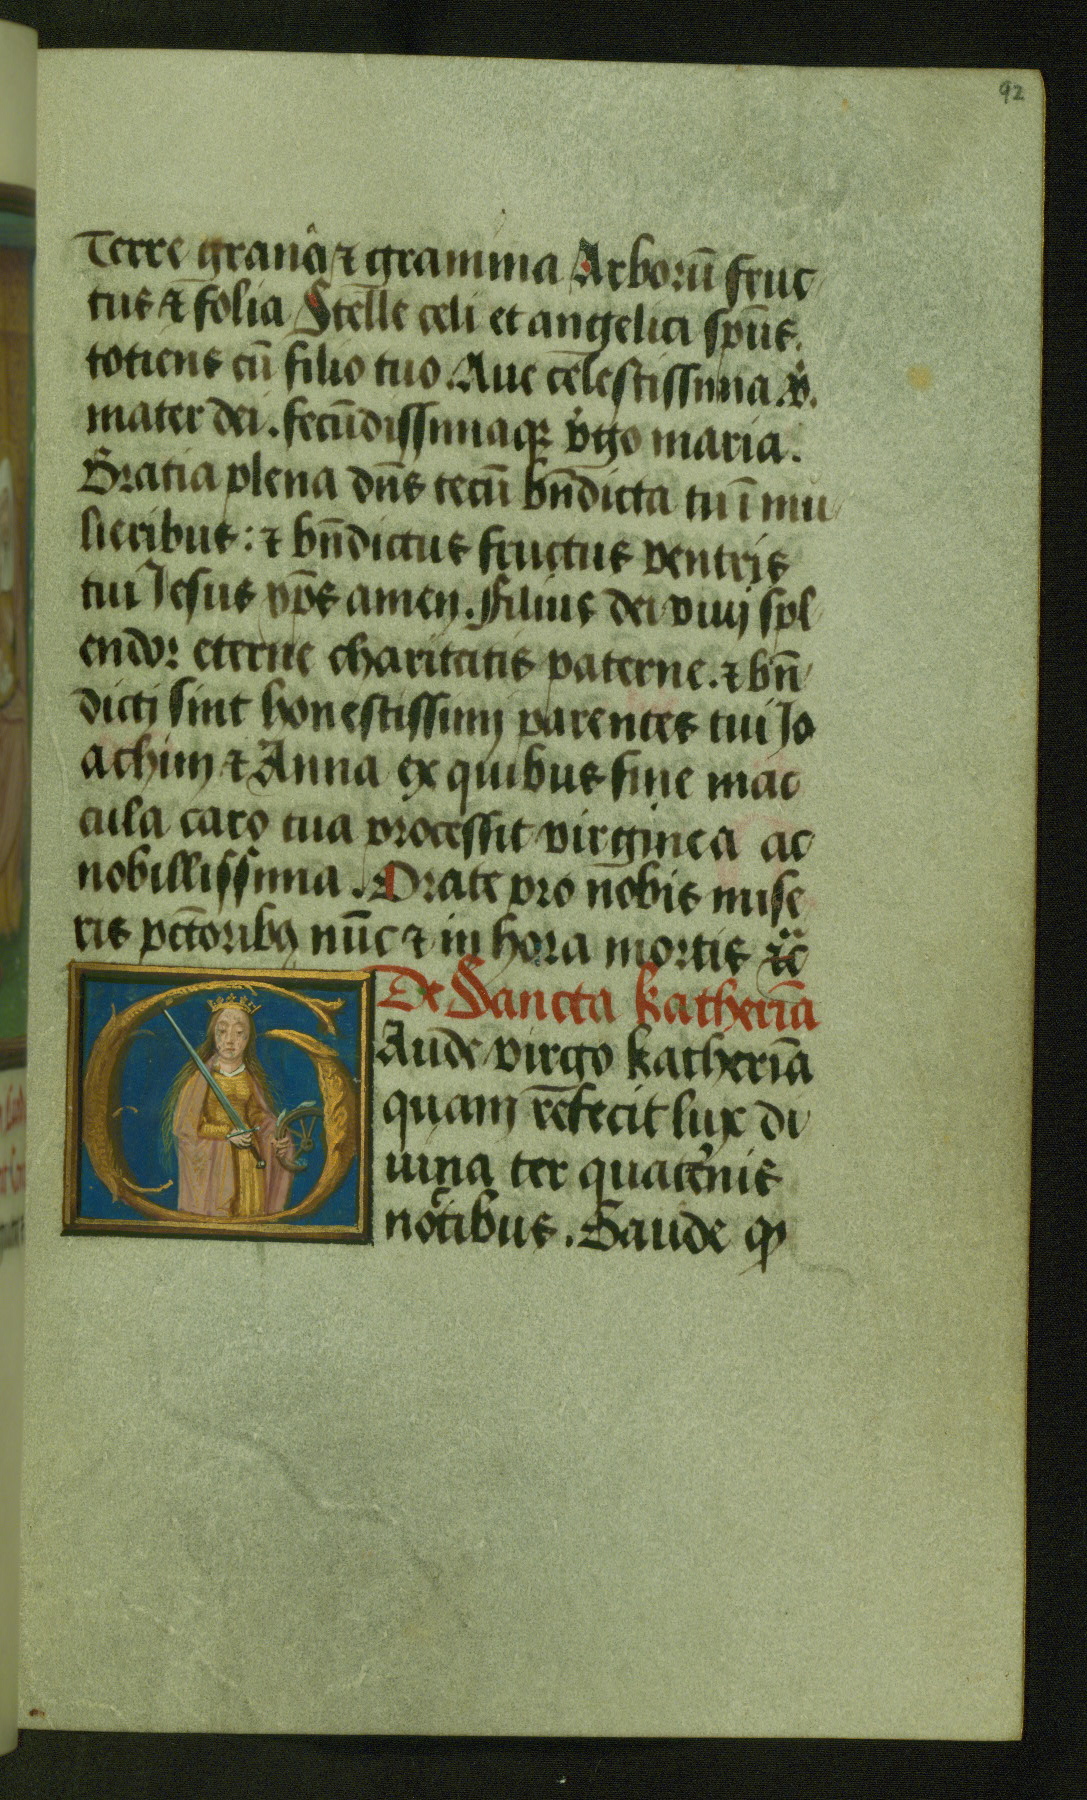 92
Terre grana ⁊ gramina Arborū fruc
tus ⁊ folia Stelle celi et angelici spūs.
totiens cū filio tuo. Aue celestissima v̕.
mater dei. fecūdissimaqꝫ v̕go maria.
Gratia plena dn̄s tecū bn̄dicta tu ī mu
lieribus: ⁊ bn̄dictus fructus ventris
tui Jesus xp̄s amen. Filius dei viuj spl
endor eterne charitatis paterne. ⁊ bn̄
dicti sint honestissimj parentes tui Jo
achim ⁊ Anna ex quibus sine mac
cula caro tua processit virginea ac
nobillissima. Orate pro nobis mise
ris pctōribꝯ nūc ⁊ in hora mortis ⁊c̄
De Sancta katherīa
Aude virgo katherīa
quam refecit lux di
uina ter quat̕nis
noctibus. Gaude ꝙ